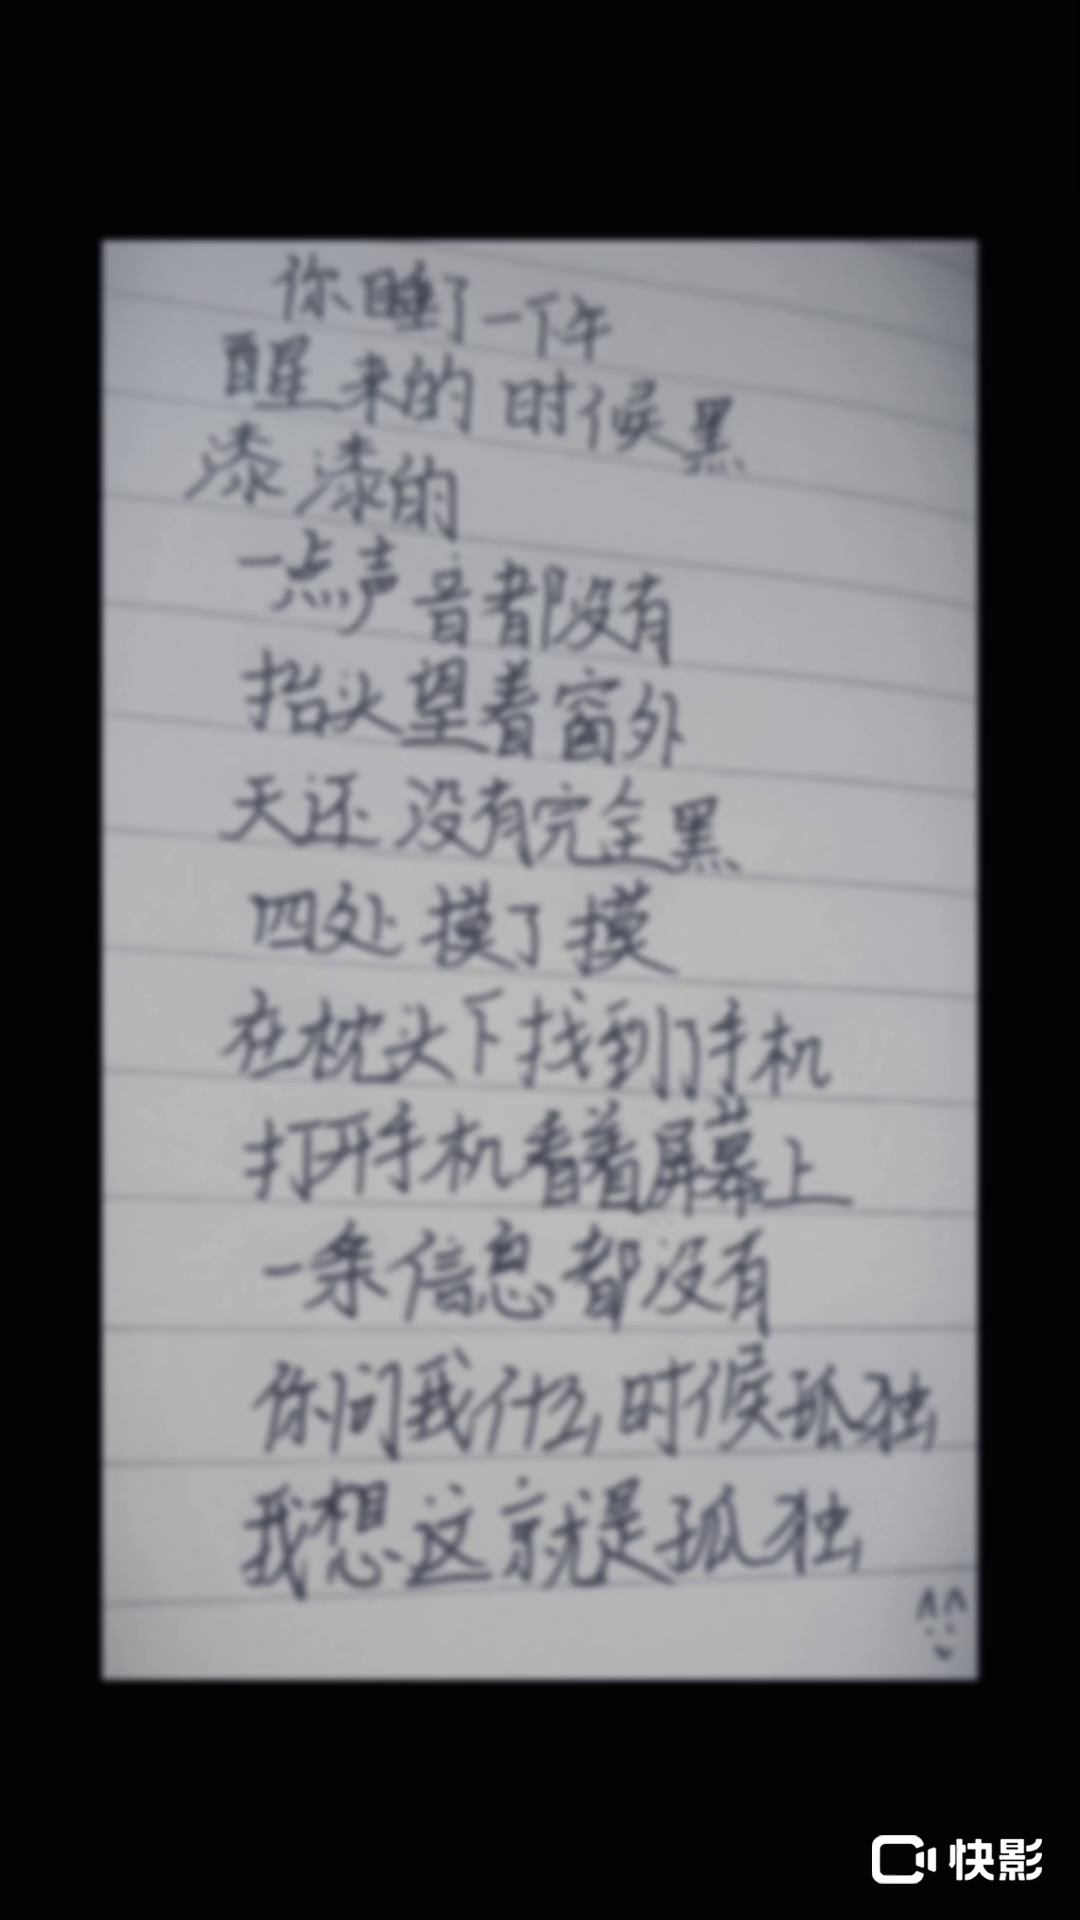 你睡了一下午
醒来的时候黑
漆漆的
一点声音都没有
抬头望着窗外
天还没有完全黑
四处摸了摸
在枕头下找到了手机
打开手机看着屏幕上
一条信息都没有
你问我什么时候孤独
我想这就是孤独
快影